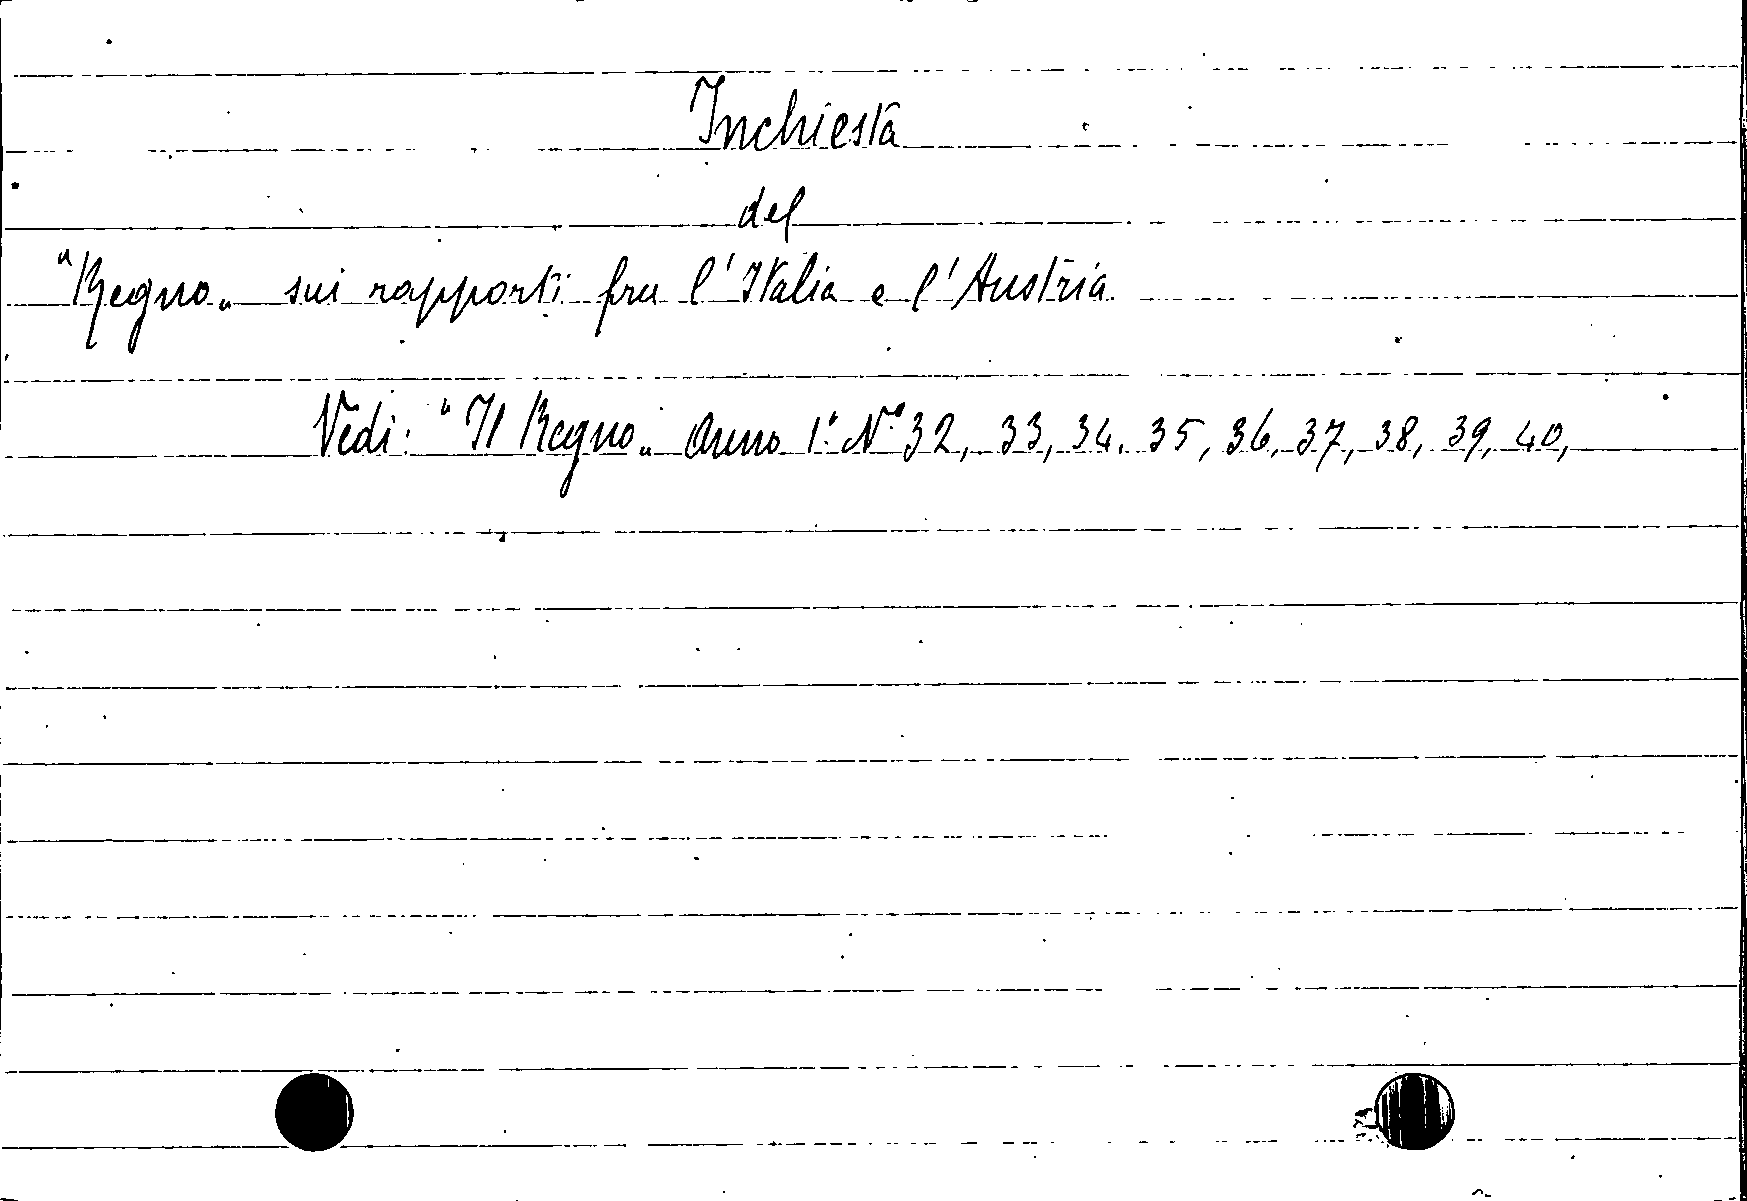 Inchiesta
del
"Regno„ sui rapporti fra l'Italia e l'Austria
Vedi: "Il Regno„ Anno 1º. Nº 32, 33, 34. 35, 36, 37, 38, 39, 40,